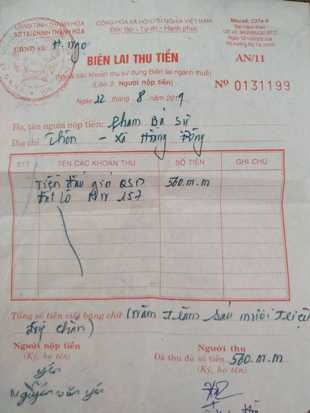 CÔNG TỈNH THANH HÓA
SỞ TÀI CHÍNH THANH HÓA
UBND xã: H. Ngọ
CỘNG HÒA XÃ HỘI CHỦ NGHĨA VIỆT NAM
Độc lập - Tự do - Hạnh phúc
BIÊN LAI THU TIỀN
(các khoản thu sử dụng Biên lai ngành thuế)
(Liên Người nộp tiền)
AN/11
Nº 0131199
Ngày 22 tháng 8 năm 2019
Họ, tên người nộp tiền: Phạm Bá Sỹ
Địa chỉ Thôn - Xã Hồng
STT TÊN CÁC KHOẢN THU SỐ TIỀN GHI CHÚ
Tiền Đấu giá QSD 560.m.m
Đất Lô 157
Tổng số tiền (viết bằng chữ) (Năm Trăm Sáu mươi Triệu
chẵn)
Người nộp tiền
(Ký, họ tên)
Yên
Nguyễn Văn Yên
Người thu
Đã thu đủ số tiền 560.m.m
(Ký, họ tên)